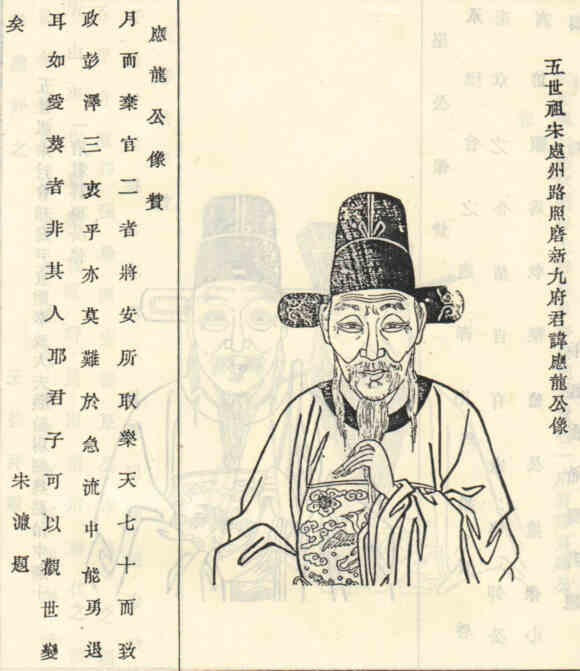 五世祖朱處州路照磨新九府君諱應龍公像
應龍公像贊
月而棄官二者將安所取樂天七十而致
政彭澤三衷乎亦莫難於急流中能勇退
耳如愛葵者非其人耶君子可以觀世變
矣
朱濂題